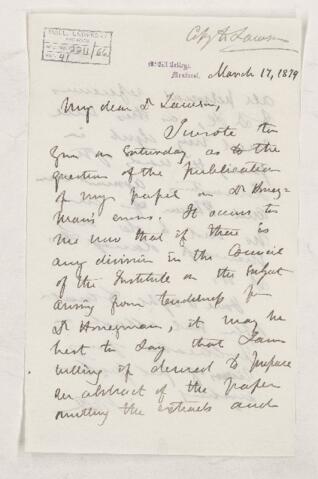 Copy to Lawson
McGill College,
Montreal.
March 17, 1879
My dear Dr Lawson,
I wrote to
you on Saturday as to the
question of the publication
of my paper on Dr Honey-
man's errors. It occurs to
me now that if there is
any division in the Council
of the Institute on the subject
arising from tenderness for
Dr Honeyman, it may be
best to say that I am
willing if desired to prepare
an abstract of the paper
omitting the extracts and